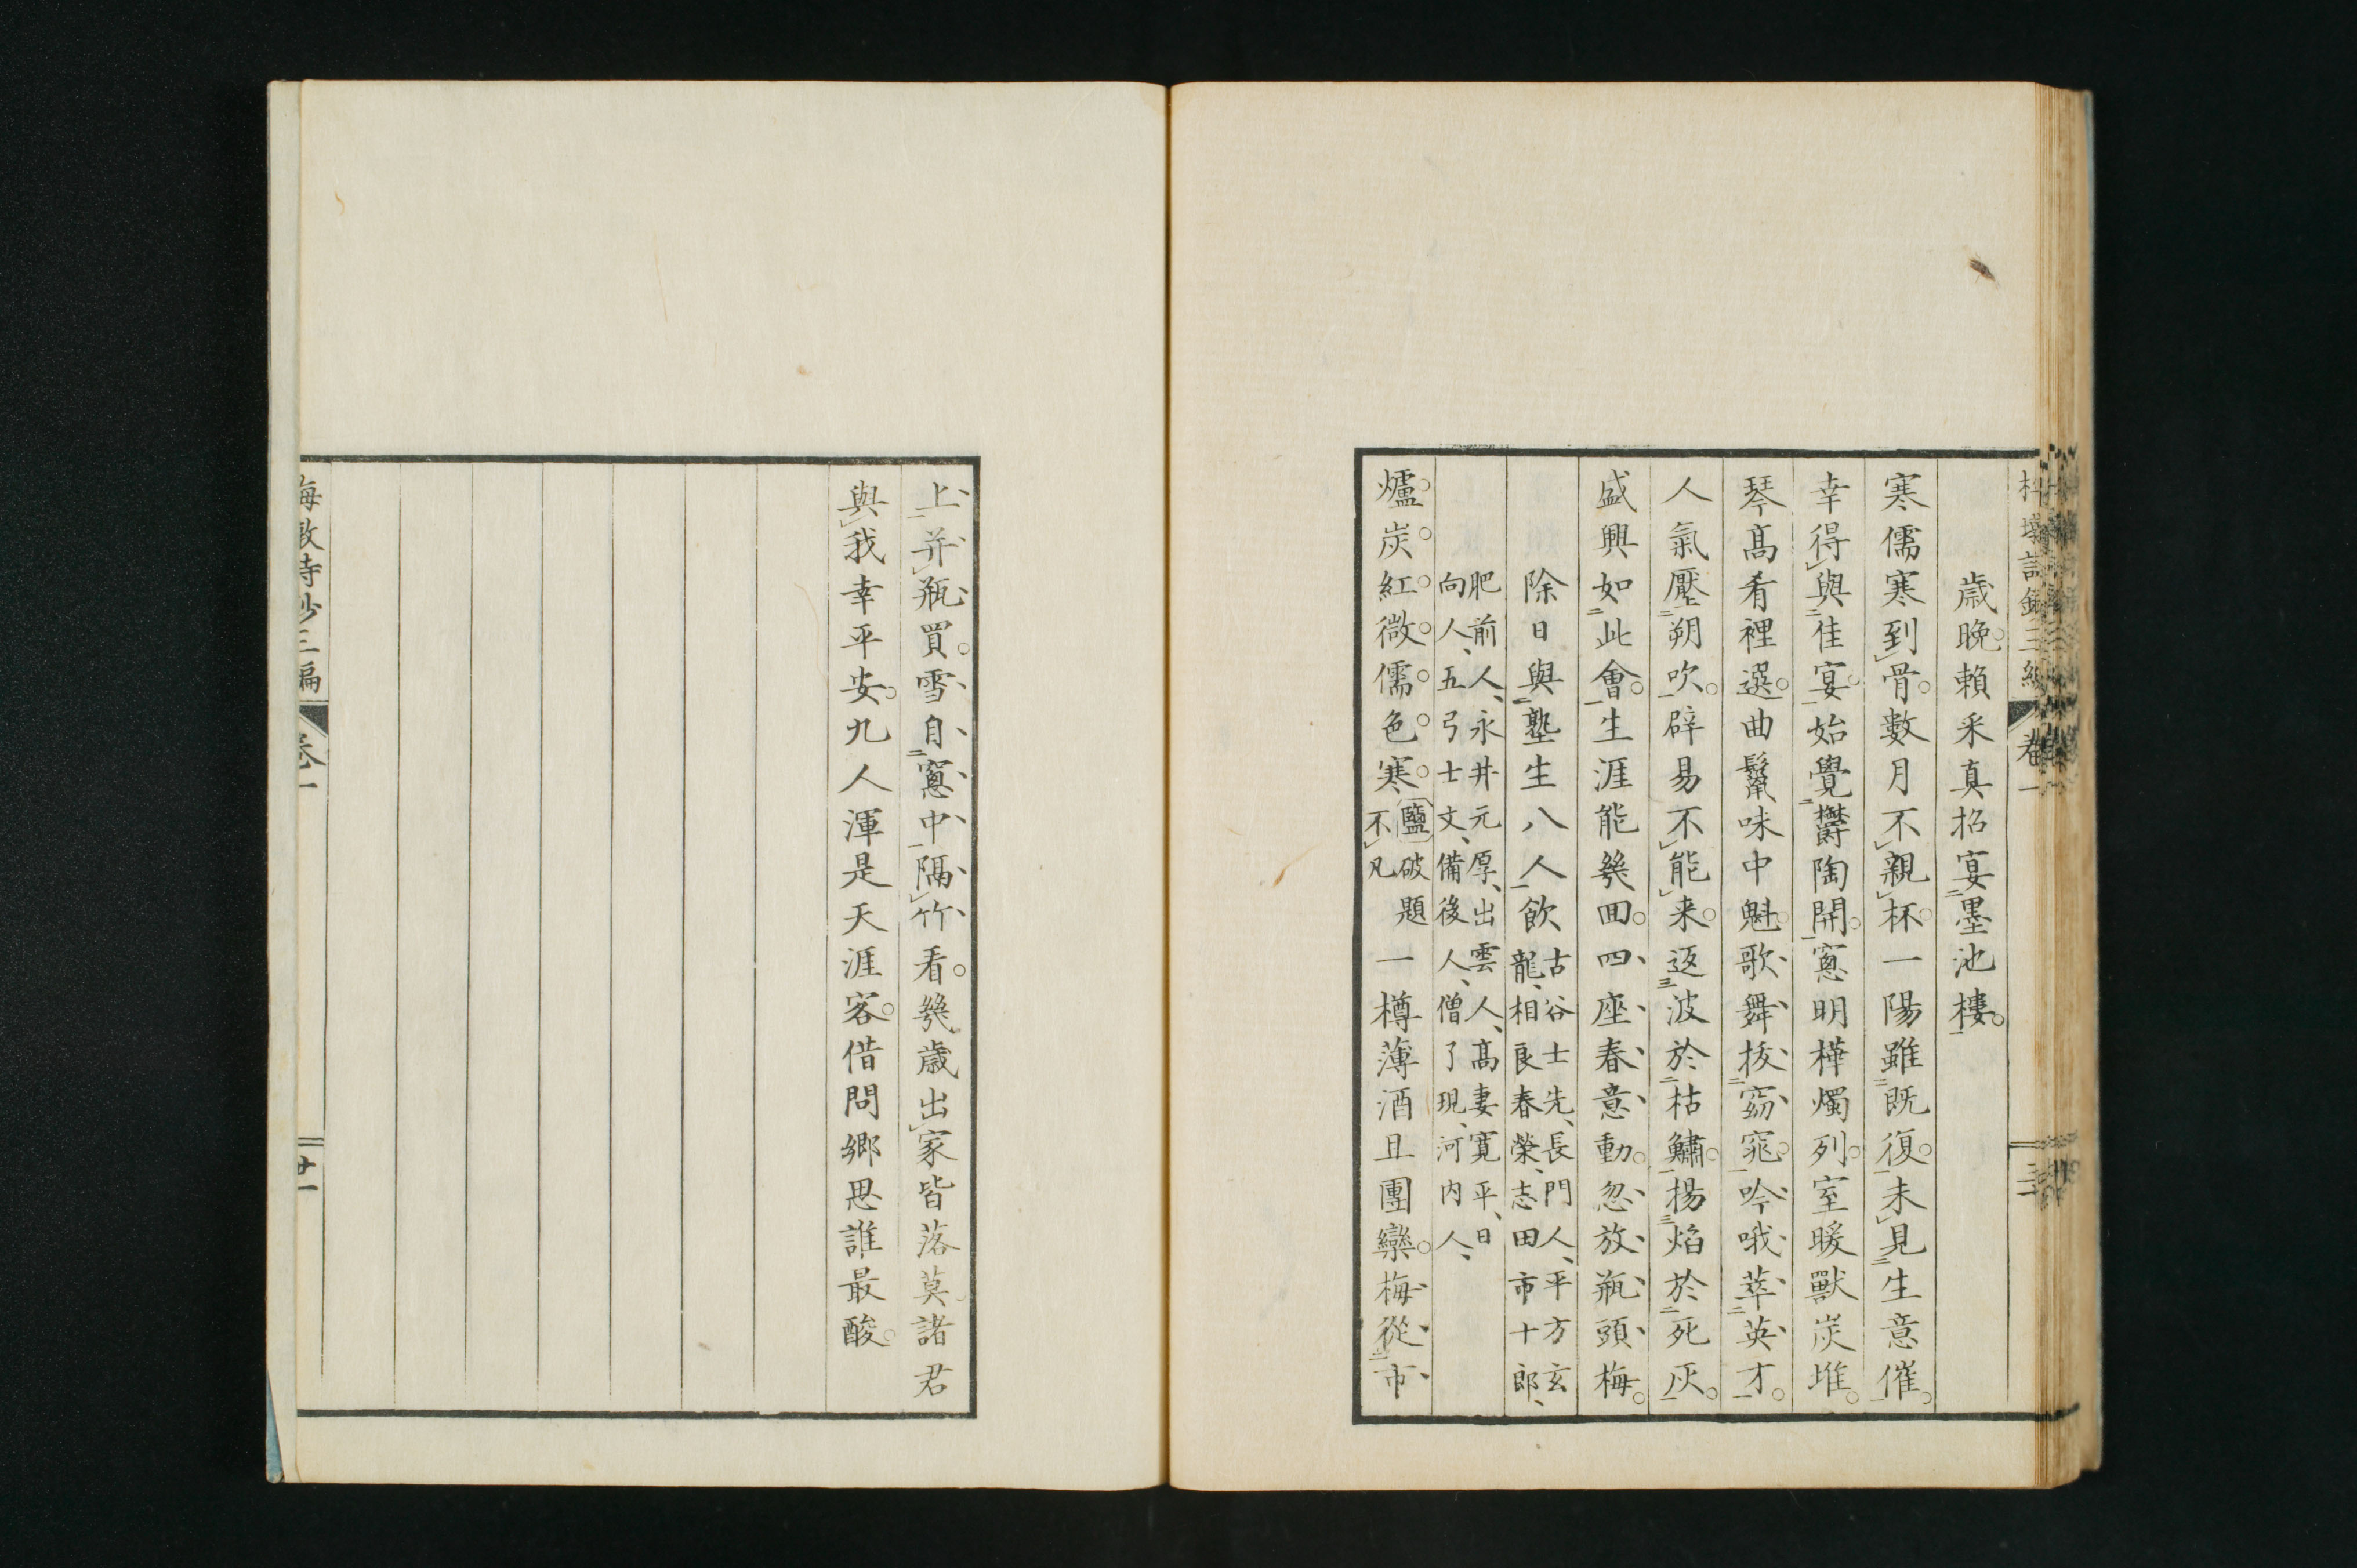 歳晩賴釆真招宴墨池樓。
寒儒寒到骨。數月不親杯。一陽雖既復。未見生意催。
幸得與佳宴。始覺欝陶開。窻明樺燭列。室暖獸炭堆。
琴髙肴裡選。曲鬚味中魁。歌舞拔窈窕。吟哦萃英才。
人氣壓朔吹。辟易不能来。返波於枯鱐。揚焰於死灰。
盛興如此會。生涯能幾回。四座春意動。忽放瓶頭梅。
除日與塾生八人飲
古谷士先、長門人、平方玄
龍、相良春榮、志田市十郎、
肥前人、永井元厚、出雲人、髙妻寛平、日
向人、五弓士文、備後人、僧了現、河内人、
爐炭紅微儒色寒。
鹽破題
不凡
一樽薄酒且團欒。梅從市
上并瓶買。雪自窻中隔竹看。幾歳出家皆落莫。諸君
與我幸平安。九人渾是天涯客。借問郷思誰最酸。
卷一
海敦詩抄三編
卷一
廿一